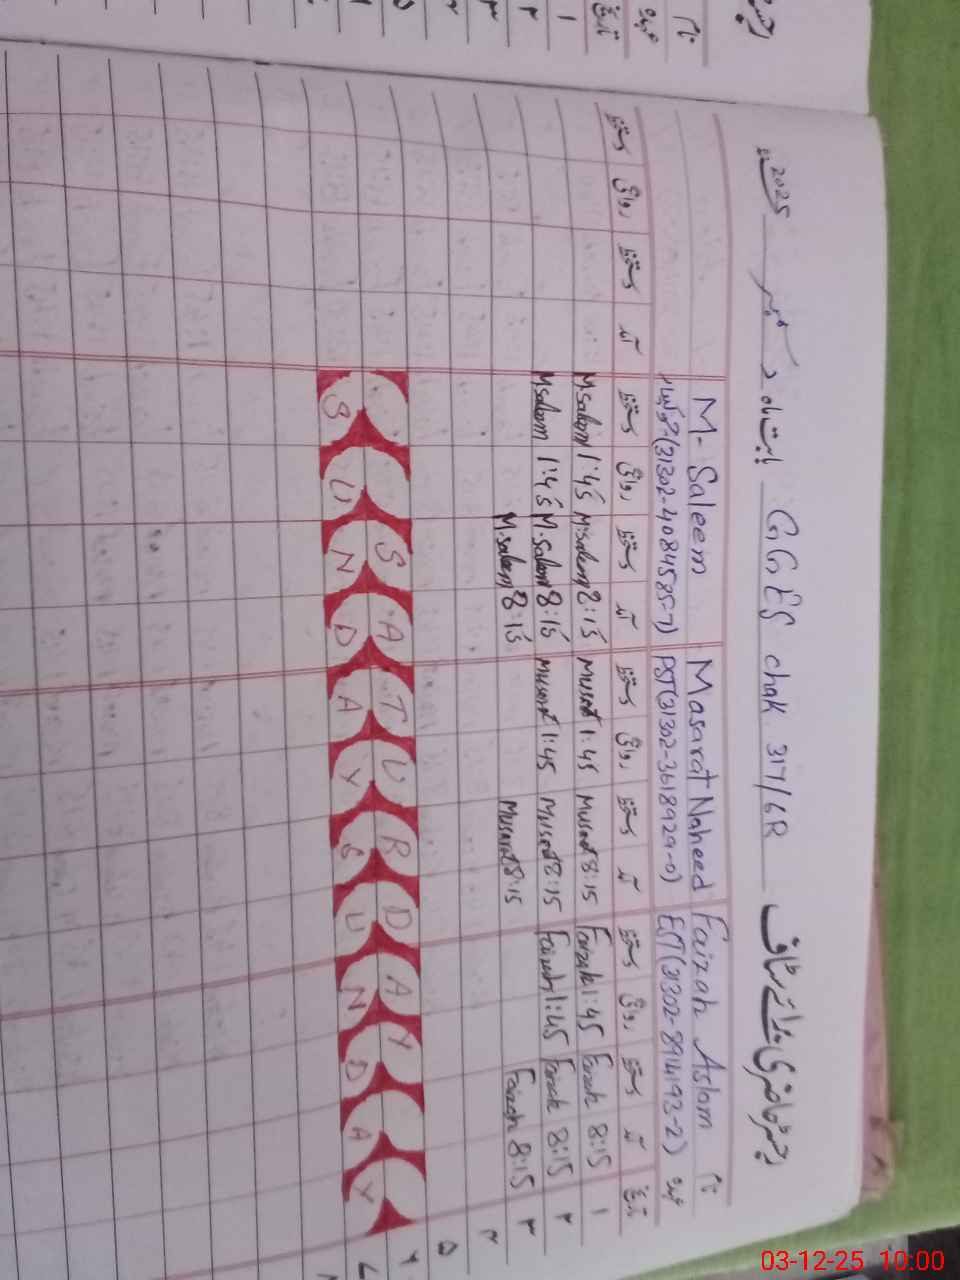 رجسٹر حاضری برائے سٹاف GGES chak 317/6R بابت ماہ دسمبر 2025ء
M- Saleem Masarat Naheed Faizah Aslam نام
(31302-4084585-7) PST(31302-3618929-0) EST(31302-8914193-2) عہدہ
تاریخ آمد دستخط روانگی دستخط آمد دستخط روانگی دستخط آمد دستخط روانگی دستخط آمد دستخط روانگی دستخط
M.Saleem 1:45 M.Saleem 8:15 Musarat 1:45 Musarat 8:15 Faizah 1:45 Faizah 8:15 ۱
M.Saleem 1:45 M.Saleem 8:15 Musarat 1:45 Musarat 8:15 Faizah 1:45 Faizah 8:15 ۲
M.Saleem 8:15 Musarat 8:15 Faizah 8:15 ۳
۴
۵
SATURDAY ۶
SUNDAY & SUNDAY ۷
03-12-25 10:00